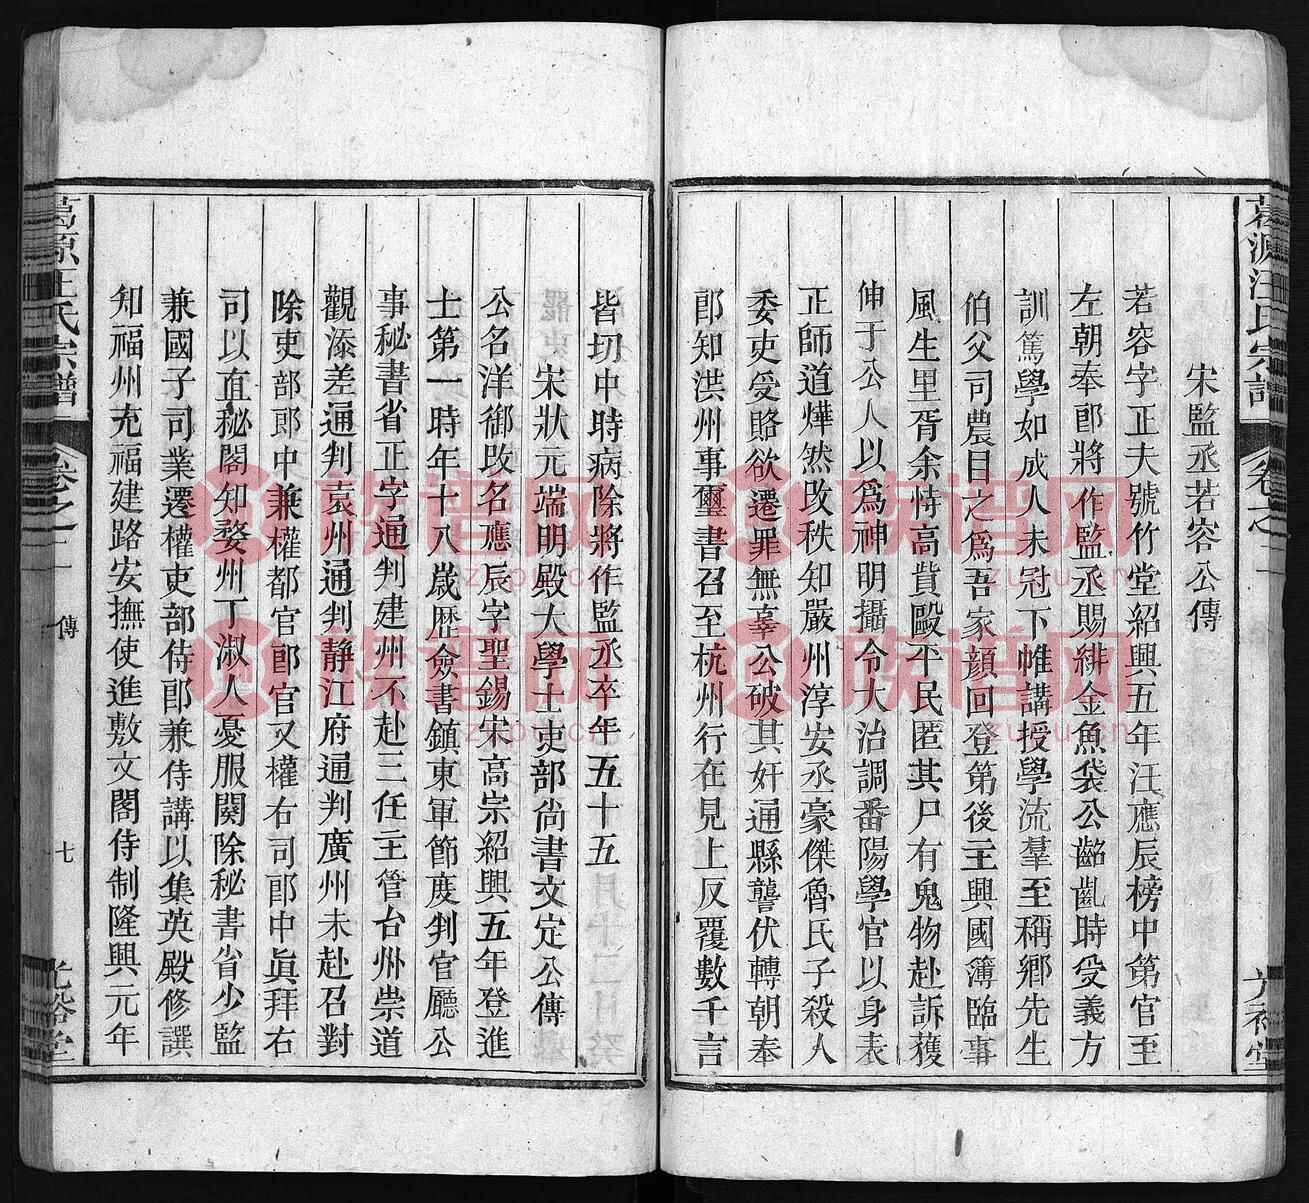 宋監丞若容公傳
若容字正夫號竹堂紹興五年汪應辰榜中第官至
左朝奉郎將作監丞賜緋金魚袋公齠齔時受義方
訓篤學如成人未冠下帷講授學流羣至稱鄉先生
伯父司農目之爲吾家顔回登第後主興國簿臨事
風生里胥余恃高貲毆平民匿其尸有鬼物赴訴獲
伸于公人以爲神明攝令大治調番陽學官以身表
正師道燁然攺秩知嚴州淳安丞豪傑魯氏子殺人
委吏受賂欲遷罪無辜公破其奸通縣讋伏轉朝奉
郎知洪州事璽書召至杭州行在見上反覆數千言
皆切中時病除將作監丞卒年五十五
宋狀元端明殿大學士吏部尚書文定公傳
公名洋御攺名應辰字聖錫宋高宗紹興五年登進
士第一時年十八歲歷僉書鎮東軍節度判官廳公
事秘書省正字通判建州不赴三任主管台州崇道
觀添差通判袁州通判靜江府通判廣州未赴召對
除吏部郎中兼權都官郎官又權右司郎中眞拜右
司以直秘閣知婺州丁淑人憂服闋除秘書省少監
兼國子司業遷權吏部侍郎兼侍講以集英殿修譔
知福州充福建路安撫使進敷文閣侍制隆興元年
葛源汪氏宗譜
卷之一
傳
七
光裕堂